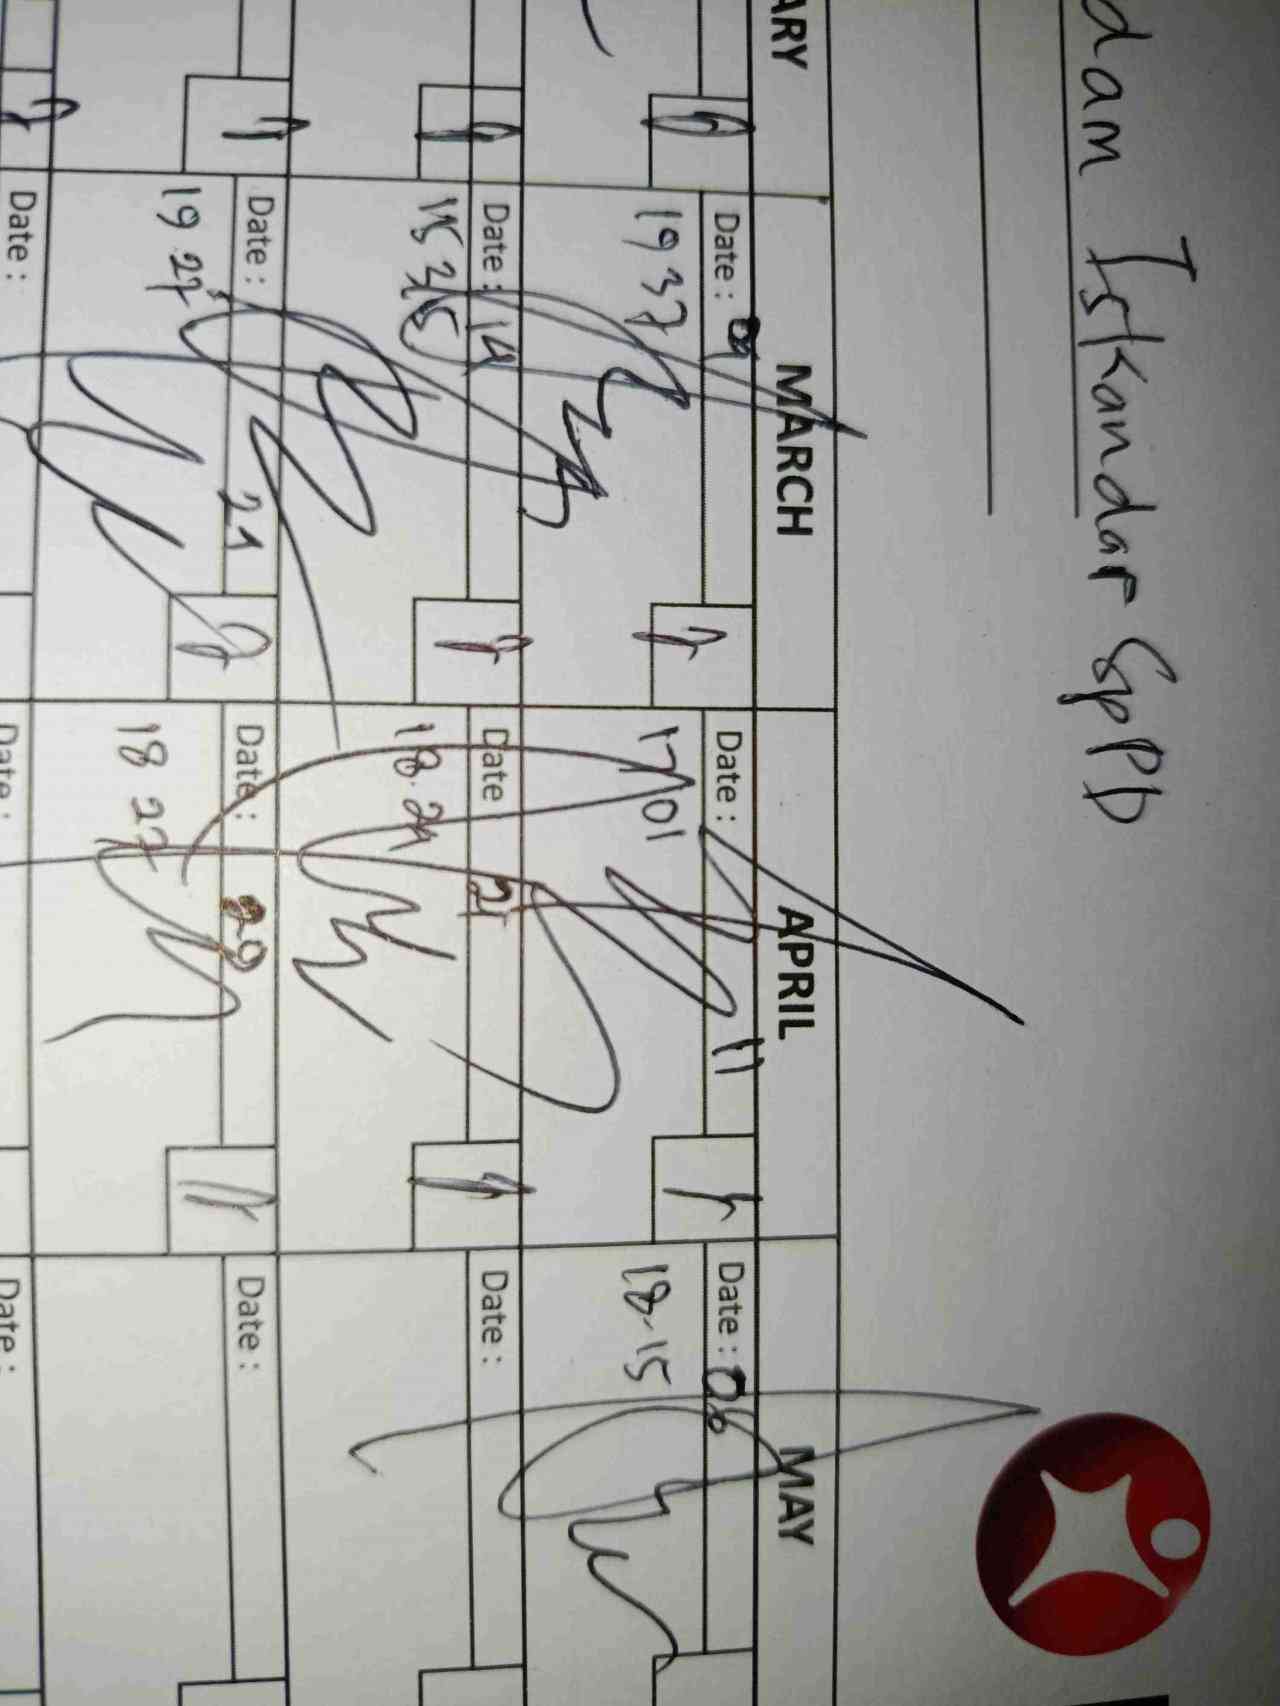 dam Iskandar SpPD
ARY MARCH APRIL MAY
Date : 09 Date : 11 Date : 06
19 37 17 01 18-15
Date : 14 Date 21 Date :
18.21
Date : 21 Date : 29 Date :
19.27 18 27
Date : Date : Date :